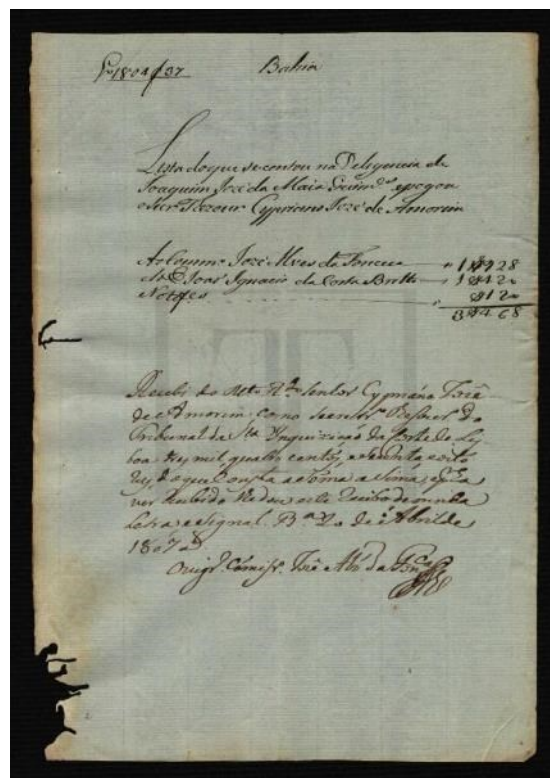 1804 f 37 Bahia
Lista do que se contou na Deligencia de
Joaquim José da Maia e pagou
o Cypriano Jozé de Amorim
Ao Comm.º Jozé Alves da Fonceca 1$928
Ao E Ignacio da Costa Britto 1$420
Notifes $120
3$468
Recebi do M.to R.do Senhor Cypriano José
de Amorim como do
Tribunal da S.ta Inquizição da Corte de Lis
boa tres mil, quatro centos, e secenta e oito
reis, do que consta a soma asima, e p.ª a
ver recebido este Recibo de minha
Letra, e signal. B.ª 20 de Abril de
1807 a
José Alz da Fon.ca